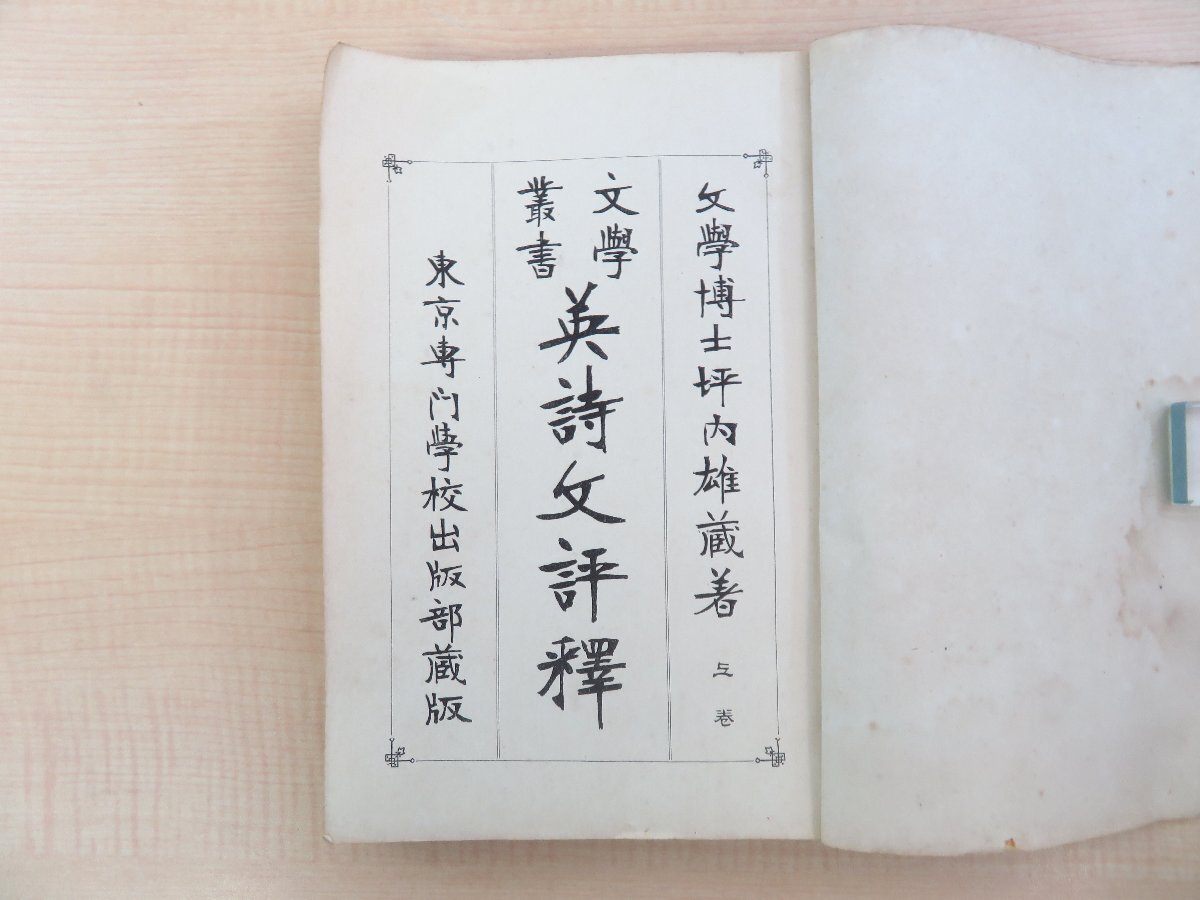 文學博士坪内雄蔵著
文學
叢書
英詩文評釋
東京専門學校出版部蔵版